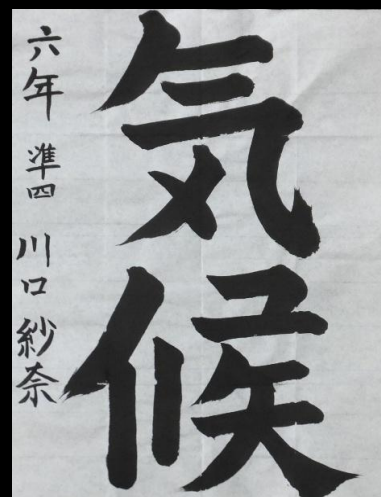 気候
六年 準四 川口紗奈